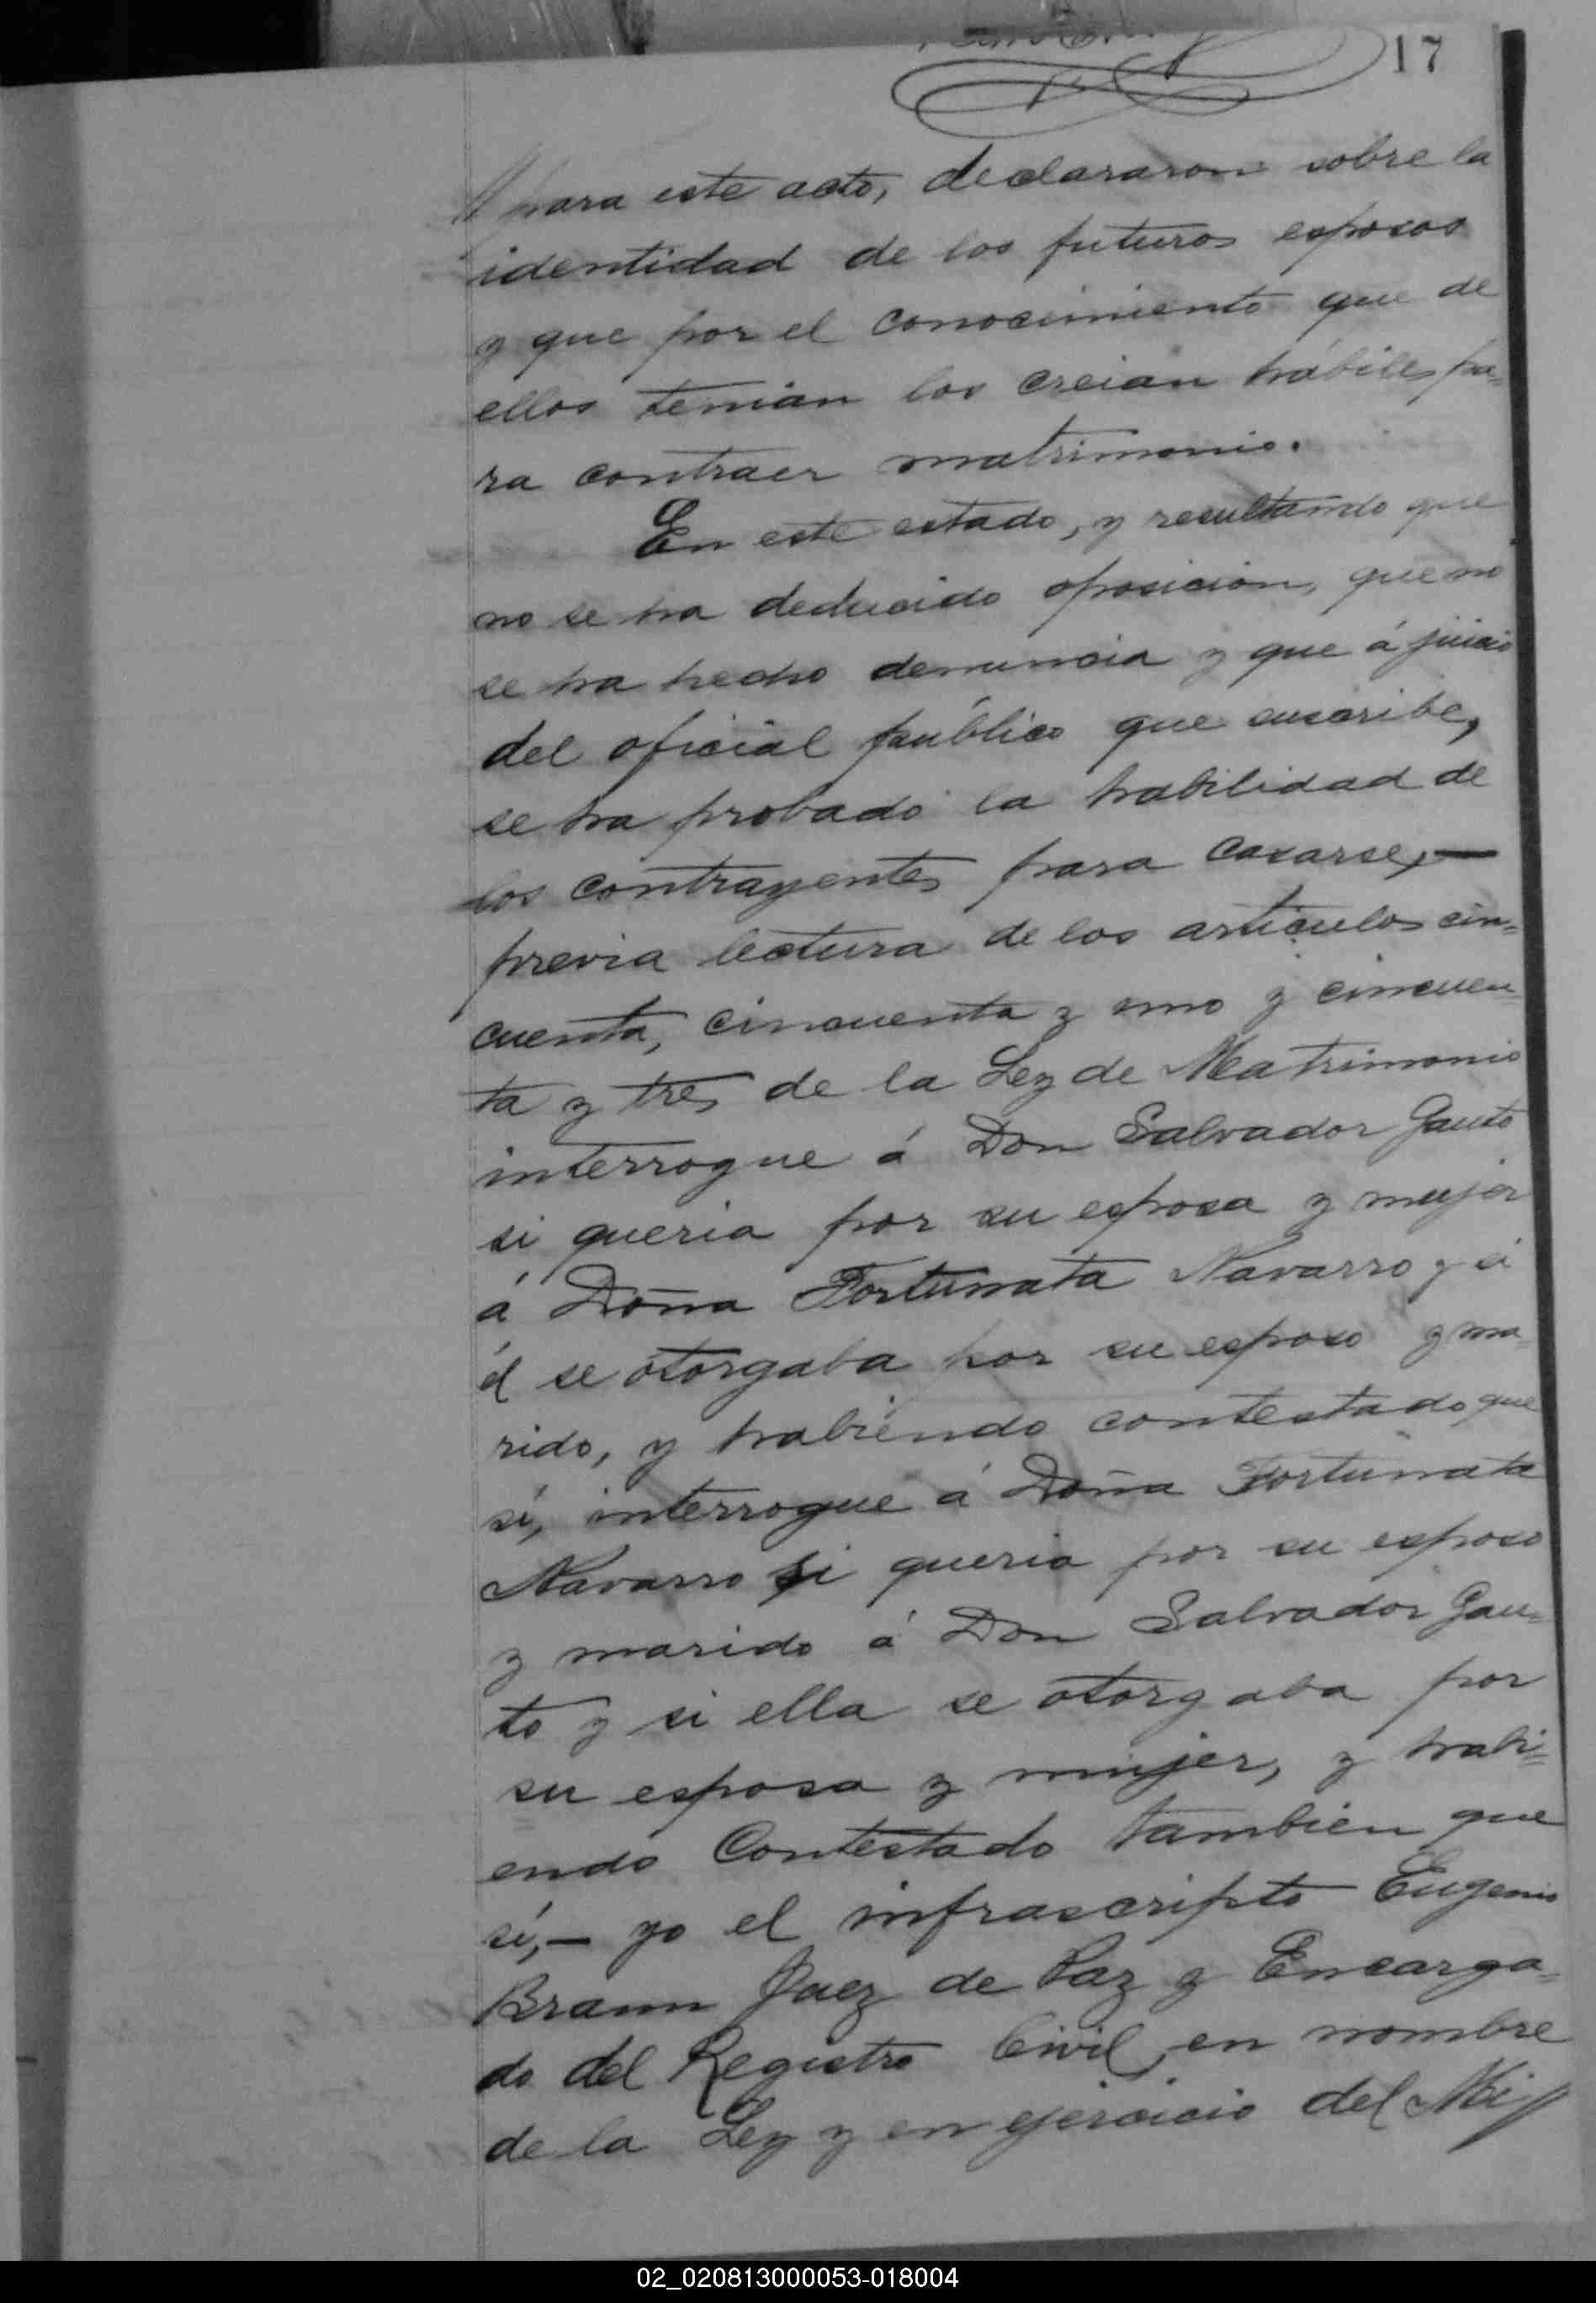 17
para este acto, declararon sobre la
identidad de los futuros esposos
y que por el conocimiento que de
ellos tenian los creian hábiles pa-
ra contraer matrimonio.
En este estado, y resultando que
no se ha deducido oposición, que no
se ha hecho denuncia y que á juicio
del oficial público que suscribe,
se ha probado la habilidad de
los contrayentes para casarse, —
previa lectura de los articulos cin=
cuenta, cincuenta y uno y cincuen
ta y tres de la Ley de Matrimonio
interrogue á Don Salvador Gauto
si queria por su esposa y mujer
á Doña Fortunata Navarro y si
él se otorgaba por su esposo y ma
rido, y habiendo contestado que
sí, interrogue á Doña Fortunata
Navarro si queria por su esposo
y marido á Don Salvador Gau=
to y si ella se otorgaba por
su esposa y mujer, y habi=
endo Contestado tambien que
sí, — yo el infrascripto Eugenio
Braun Juez de Paz y Encarga=
do del Registro Civil, en nombre
de la Ley y en ejercicio del Mi
02_020813000053-018004